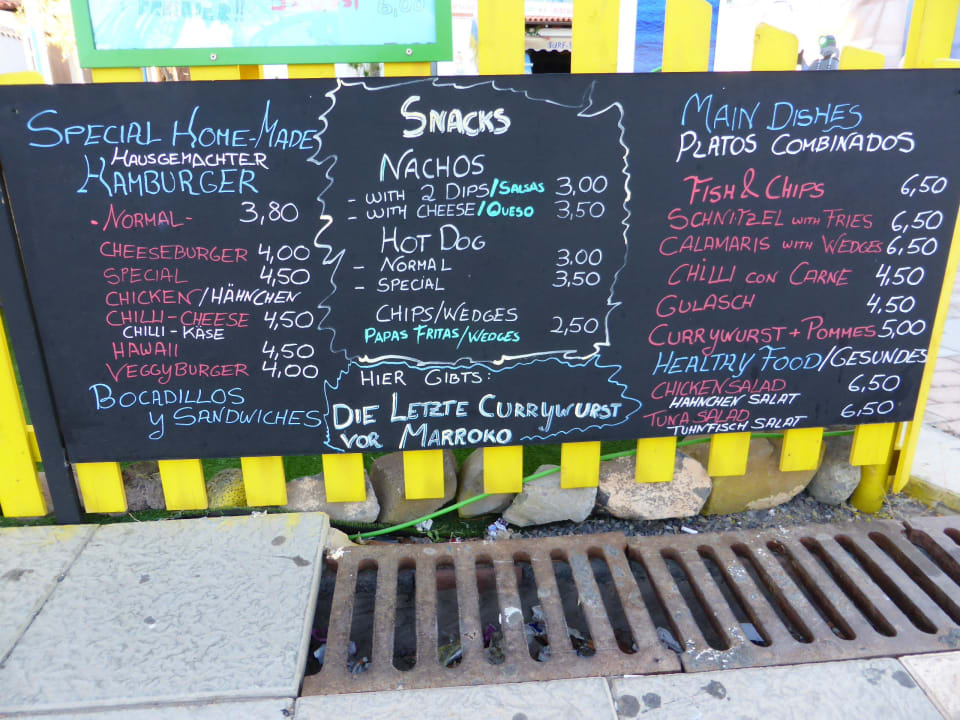 SURF
SPECIAL HOME-MADE
HAUSGEMACHTER
HAMBURGER
• NORMAL - 3,80
CHEESEBURGER 4,00
SPECIAL 4,50
CHICKEN/HÄHNCHEN
CHILLI-CHEESE 4,50
CHILLI-KÄSE
HAWAII 4,50
VEGGYBURGER 4,00
BOCADILLOS
y SANDWICHES
SNACKS
NACHOS
- WITH 2 DIPS/SALSAS 3,00
- WITH CHEESE/QUESO 3,50
HOT DOG
- NORMAL 3,00
- SPECIAL 3,50
CHIPS/WEDGES
PAPAS FRITAS/WEDGES 2,50
HIER GIBTS:
DIE LETZTE CURRYWURST
VOR MARROKO
MAIN DISHES
PLATOS COMBINADOS
FISH & CHIPS 6,50
SCHNITZEL WITH FRIES 6,50
CALAMARIS WITH WEDGES 6,50
CHILLI CON CARNE 4,50
GULASCH 4,50
CURRYWURST + POMMES 5,00
HEALTRY FOOD/GESUNDES
CHICKENSALAD 6,50
HÄHNCHEN SALAT
TUNA SALAD 6,50
TUHNFISCH SALAT